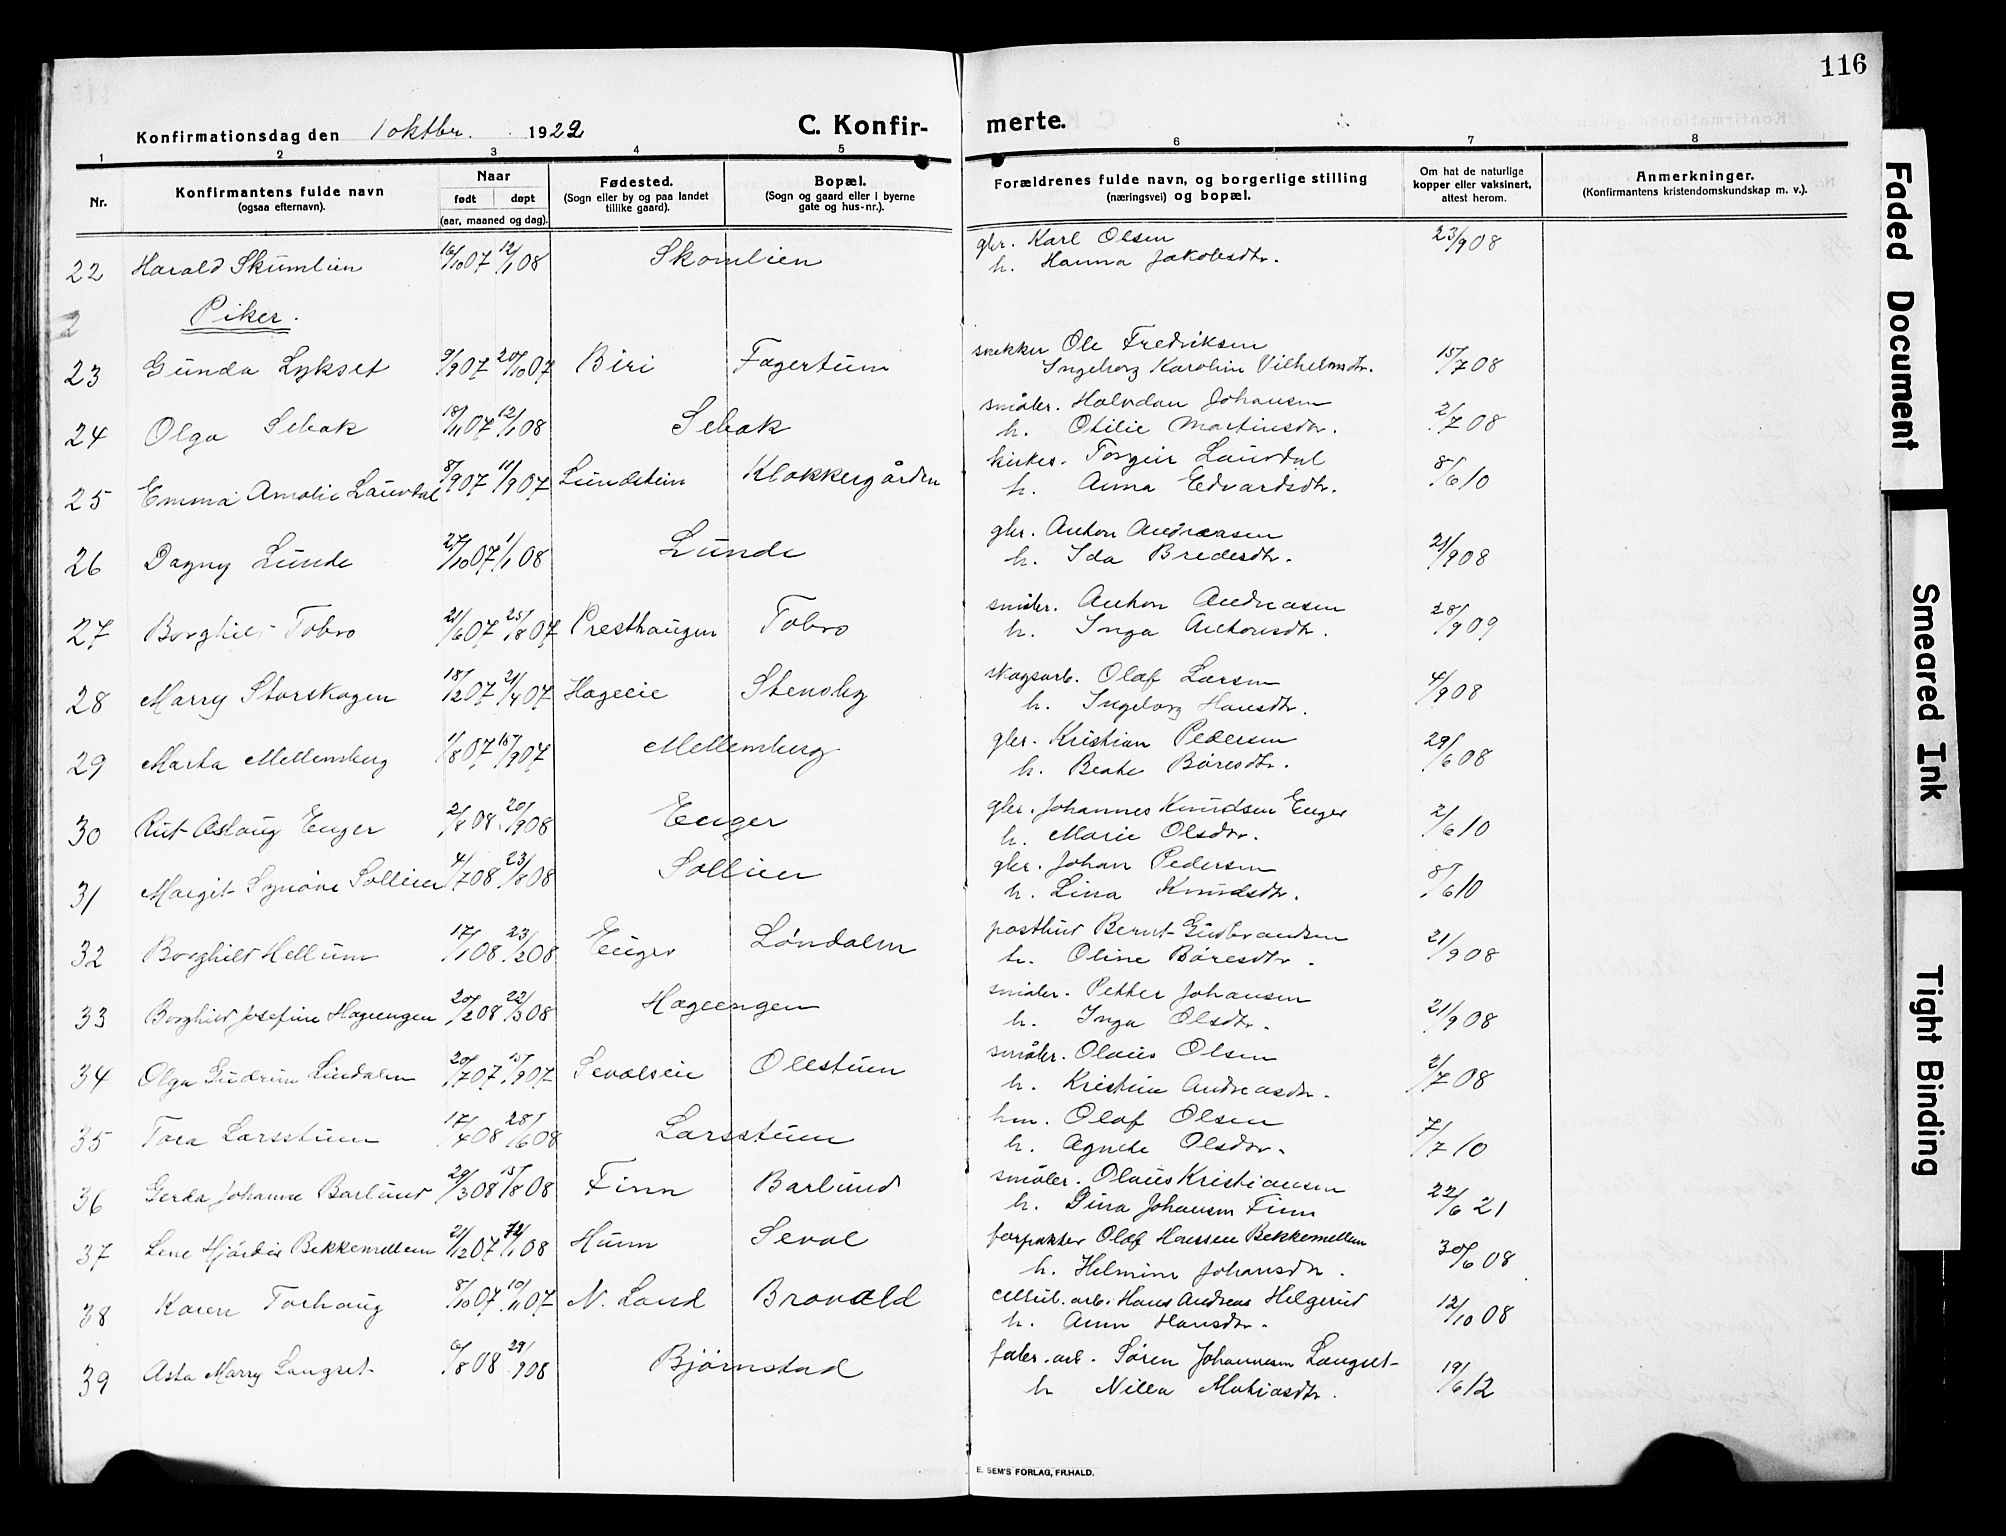 116
Konfirmationsdag den 1 oktbr. 1922
C. Konfirmerte.
1 2 3 4 5 6 7 8
Nr.
Konfirmantens fulde navn
(ogsaa efternavn).
Naar
født døpt
(aar, maaned og dag).
Fødested.
(Sogn eller by og paa landet
tillike gaard).
Bopæl.
(Sogn og gaard eller i byerne
gate og hus-nr.).
Forældrenes fulde navn, og borgerlige stilling
(næringsvei) og bopæl.
Om hat de naturlige
kopper eller vaksinert,
attest herom.
Anmerkninger.
(Konfirmantens kristendomskundskap m. v.).
22 Harald Skumlien 16/10 07 12/1 08 Skomlien gbr. Karl Olsen 23/9 08
h. Hanna Jakobsdtr.
Piker.
23 Gunda Lykset 9/9 07 20/10 07 Biri Fagertun snekker Ole Fredriksen 15/7 08
Ingeborg Karoline Vilhelmsdtr.
24 Olga Sebak 18/11 07 12/1 08 Sebak småbr. Halvdan Johansen 2/7 08
h. Otilie Martinsdtr.
25 Emma Amalie Lauvdal 8/9 07 11/9 07 Lundstein Klokkergården kirkes. Torgeir Lauvdal 8/6 10
h. Anna Edvardsdtr.
26 Dagny Lunde 27/10 07 1/1 08 Lunde gbr. Anton Andreasen 21/9 08
h. Ida Bredesdtr.
27 Borghild Tobro 21/6 07 25/8 07 Presthaugen Tobro småbr. Anton Andreasen 28/9 09
h. Inga Antonsdtr.
28 Marry Storskogen 18/12 07 21/4 07 Hageeie Stensby skogsarb. Olaf Larsen 4/9 08
h. Ingeborg Hansdtr.
29 Marta Mellemberg 1/8 07 15/9 07 Mellemberg gbr. Kristian Pedersen 29/6 08
h. Beate Båresdtr.
30 Rut Aslaug Enger 2/8 08 20/9 08 Enger gbr. Johannes Knudsen Enger 2/6 10
h. Marie Olsdtr.
31 Margit Synøve Sollien 4/7 08 23/8 08 Sollien gbr. Johan Pedersen 8/6 10
h. Lina Knudsdtr.
32 Borghild Hellum 17/1 08 23/2 08 Enger Løndalen postbud Bernt Gudbrandsen 21/9 08
h. Oline Båresdtr.
33 Borghild Josefine Hageengen 20/2 08 22/3 08 Hageengen småbr. Petter Johansen 21/9 08
h. Inga Olsdtr.
34 Olga Gudrun Lindalen 20/7 07 15/9 07 Sevalseie Olestuen småbr. Olaus Olsen 2/7 08
h. Kristine Andreasdtr.
35 Tora Larsstuen 17/4 08 28/6 08 Larsstuen hm. Olaf Olsen 7/7 10
h. Agnete Olsdtr.
36 Gerda Johanne Barlund 29/3 08 15/8 08 Finn Barlund småbr. Olaus Kristiansen 22/6 21
h. Dina Johansen Finn
37 Lene Hjördis Bekkemellem 21/12 07 /1 08 Hunn Seval forpakter Olaf Hansen Bekkemellem 30/6 08
h. Helmine Johansdtr.
38 Karen Torhaug 8/10 07 10/11 07 N. Land Brovold cellul. arb. Hans Andreas Helgerud 12/10 08
h. Anne Hansdtr.
39 Asta Marry Langset 6/8 08 29/9 08 Bjørnstad fabr. arb. Søren Johannesen Langset 19/6 12
h Nilla Matiasdtr.
E. SEM'S FORLAG, FR.HALD.
Faded Document
Smeared Ink
Tight Binding